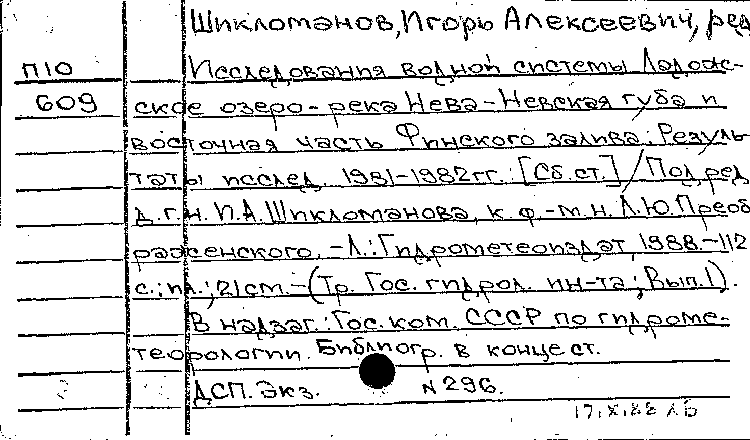 Шикломанов, Игорь Алексеевич, ред
П10
Исследования водной системы Ладож-
609
ское озеро-река Нева-Невская губа и
восточная часть Финского залива: Резуль-
таты исслед. 1981-1982 гг.: [Сб. ст.] / Под ред
д.г.н. И.А. Шикломанова, к.ф.-м.н. Л.Ю. Преоб
раженского. - Л.: Гидрометеоиздат, 1988.-112
с.: ил.; 21 см. - (Тр. Гос. гидрол. ин-та; Вып. 1).
В надзаг.: Гос. ком. СССР по гидроме-
теорологии. Библиогр. в конце ст.
ДСП. Экз. N 296.
17.X.88